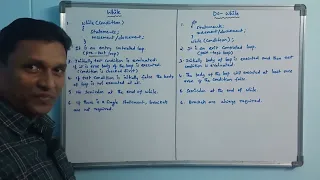 While
1. while(condition)
{
Statements;
increment/decrement;
}
2. It is an entry controlled loop
(pre-test loop)
3. Initially test condition is evaluated
if it is true body of the loop is executed.
(condition is checked first)
4. If test condition is initially false the body
of loop is not executed at all.
5. No semicolon at the end of while.
6. If there is a single statement, brackets
are not required.
Do-While
1. do
{
Statements;
increment/decrement;
} while(condition);
2. It is an exit controlled loop.
(post-test loop)
3. Initially body of loop is executed and then test
condition is evaluated.
4. The body of the loop will executed at least once
even if the condition false
5. Semicolon at the end of while
6. Brackets are always required.